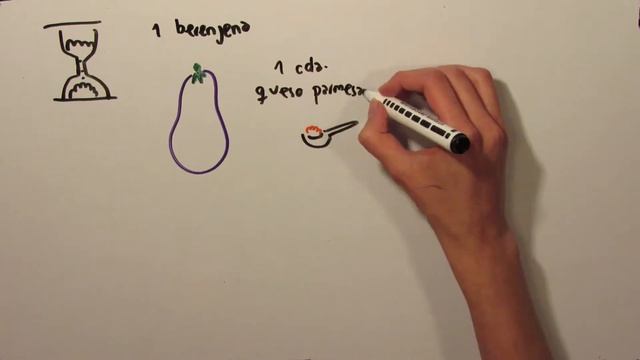 1 berenjena
1 cda.
queso parmesa